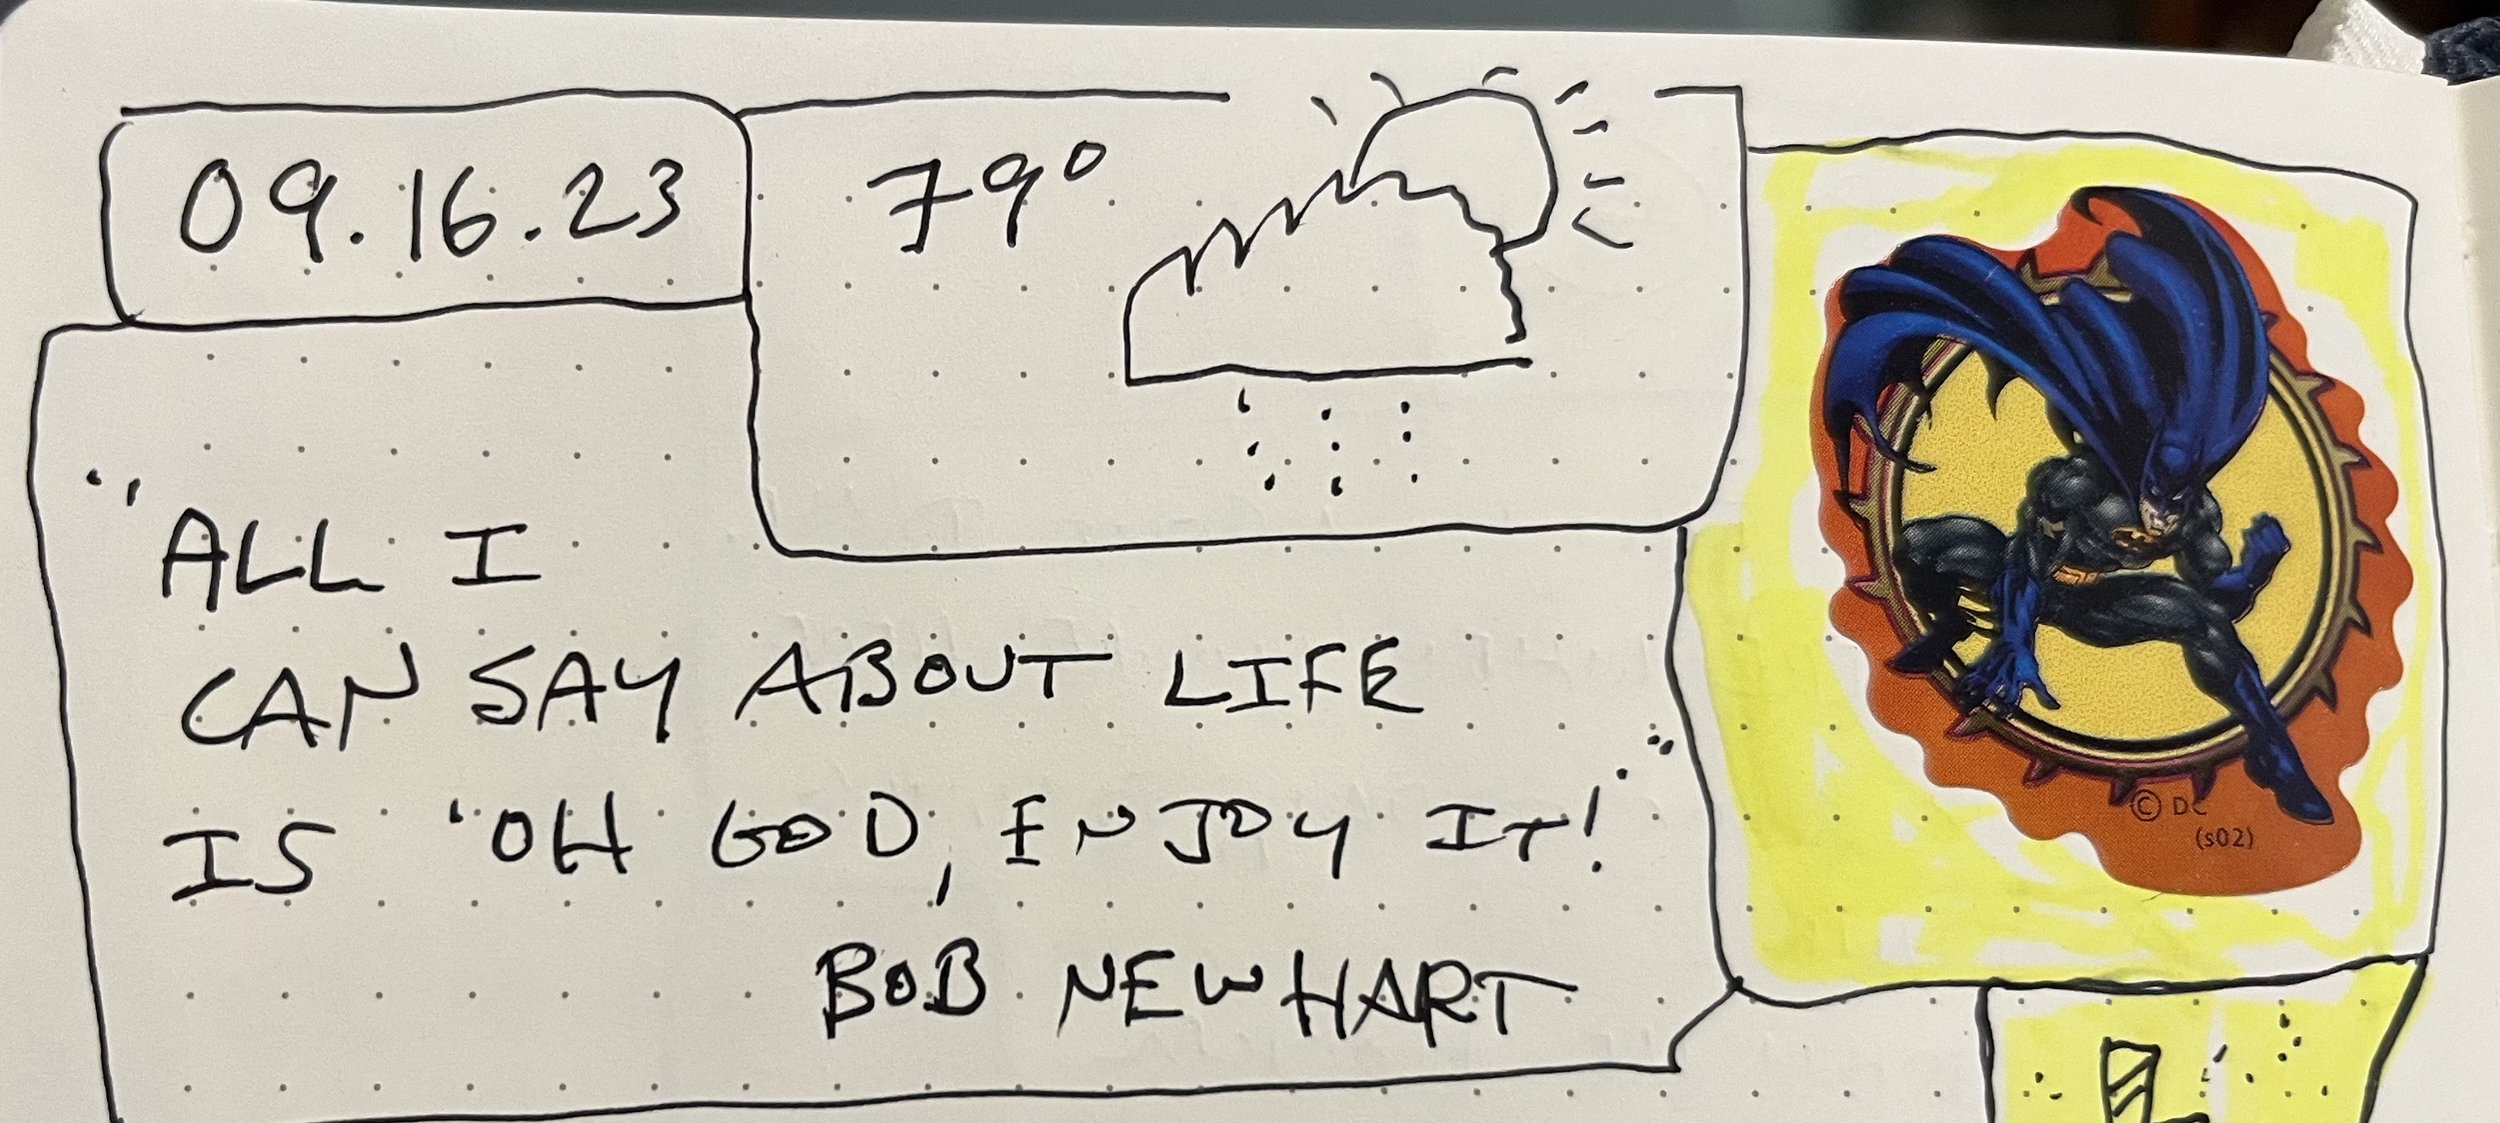 09.16.23
79°
"ALL I
CAN SAY ABOUT LIFE
IS 'OH GOD, ENJOY IT!'"
BOB NEWHART
© DC
(s02)